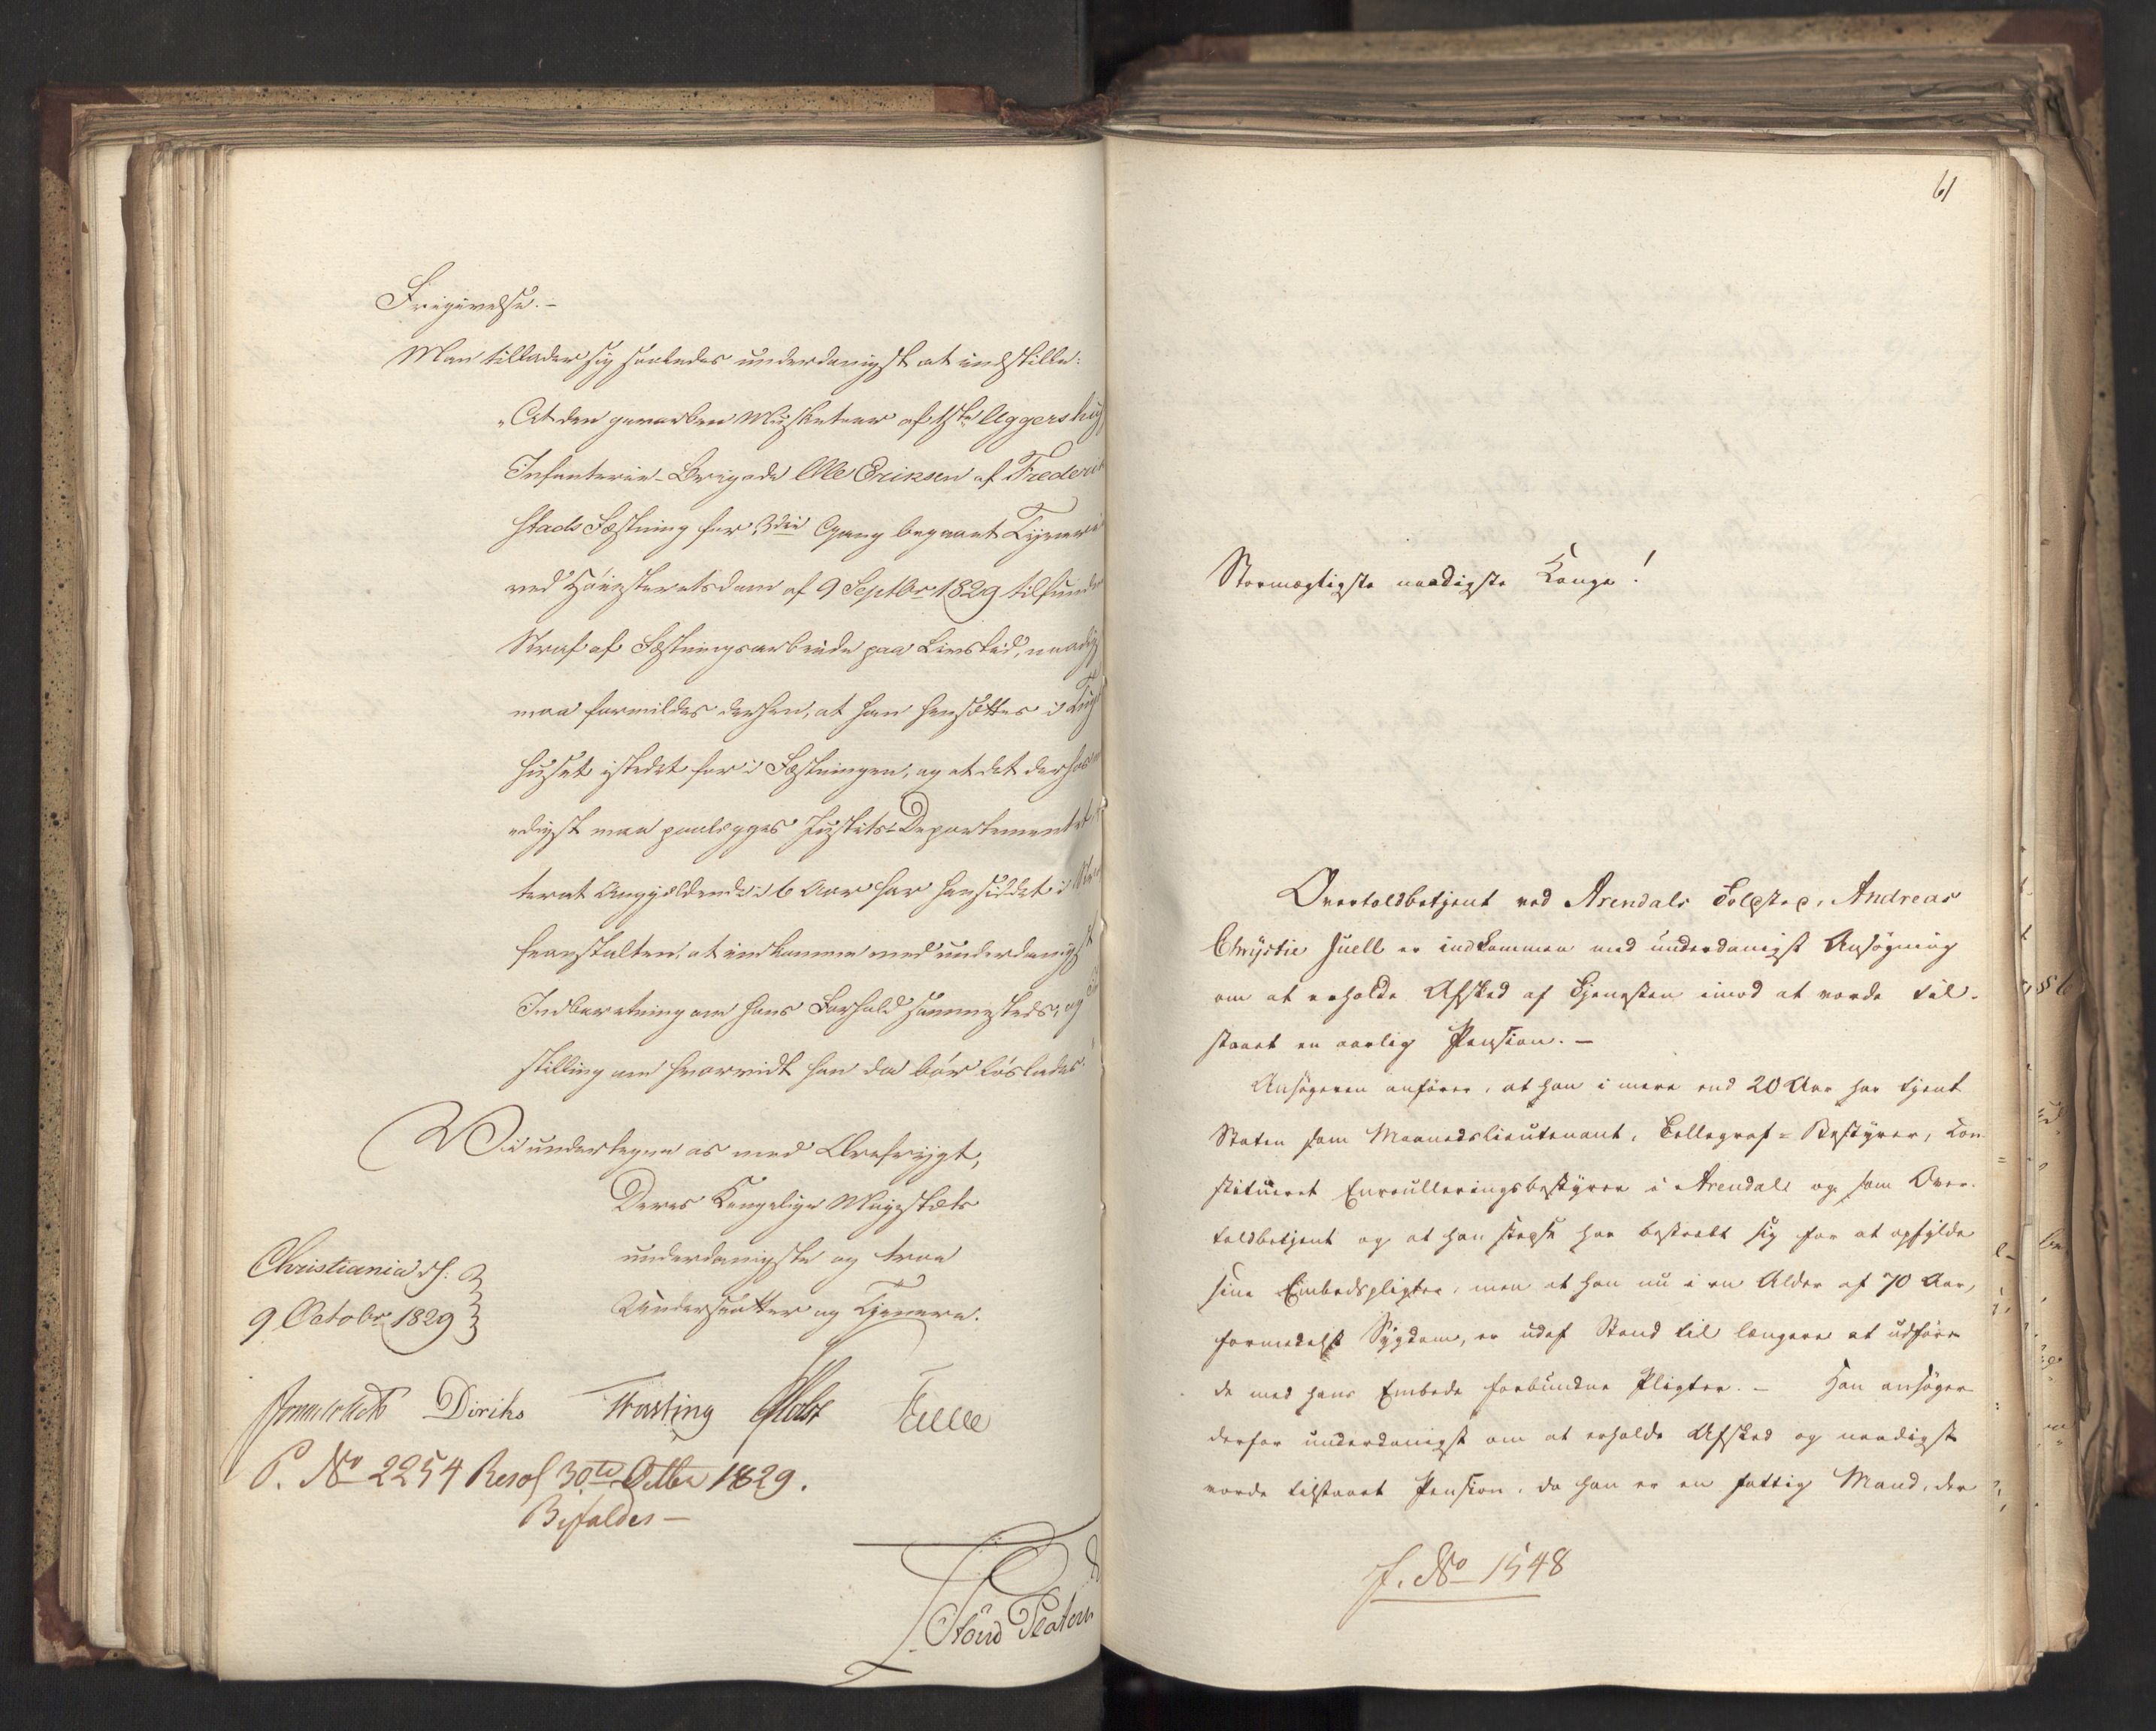 Frigivelse.-
Man tillader sig saaledes underdanigst at indstille:
"At den gevorben Musketeer af 1ste Aggershuus
Infanterie-Brigade Ole Eriksen af Frederik
stads Fæstning for 3die Gang begaaet Tyverie
ved Høiesteretsdom af 9 Septbr 1829 tilfunden
Straf af Fæstningsarbeide paa Livstid, naadigst
maa formildes derhen, at han hensættes i Tugt
huset istedet for i Fæstningen, og at det derhos na
adigst maa paalægges Justits-Departementet
terat Angjældende i 6 Aar har hensiddet i
feanstalten, at indkomme med underdanigst
Indberetning om hans Forhold sammesteds, og
stilling om hvorvidt han da bør løslades.
Vi undertegne os med Ærefrygt,
Deres Kongelige Majestæts
underdanigste og troe
Undersaatter og Tjenere.
Christiania d.
9 Octobr 1829
Diriks Fasting Holst
P. No 2254 Resol 30te Octbr 1829.
Bifaldes -
Platen
61
Stormægtigste naadigste Konge!
Overtoldbetjent ved Arendals Toldsted, Andreas
Chrystie Juell er indkommen med underdanigst Ansøgning
om at erholde Afsked af Tjenesten imod at vorde til-
staaet en aarlig Pension. -
Ansøgeren anfører, at han i mere end 20 Aar har tjent
Staten som Maanedslieutenant, Tellegraf-Bestyrer, Con-
stitueret Enroulleringsbestyrer i Arendal og som Over-
toldbetjent og at han stedse har bestræbt sig for at opfylde
sine Embedspligter, men at han nu i en Alder af 70 Aar,
formedelst Sygdom, er udaf Stand til længere at udføre
de med hans Embede forbundne Pligter. - Han ansøger
derfor underdanigst om at erholde Afsked og naadigst
vorde tilstaaet Pension, da han er en fattig Mand, der
J. No 1548